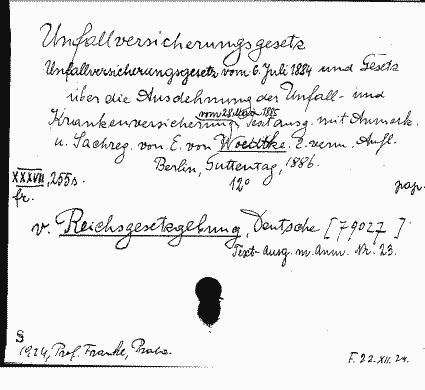 Unfallversicherungsgesetz
Unfallversicherungsgesetz vom 6. Juli 1884 und Gesetz
über die Ausdehnung der Unfall- und
vom 28. Mai 1885
Krankenversicherung. Text ausg. mit Anmerk.
u. Sachreg. von E. von Woedtke. 2. verm. Aufl.
Berlin, Guttentag, 1886.
XXXVII, 255 s. 12° pap.
fr.
v. Reichsgesetzgebung, Deutsche [79027]
Text-Ausg. m. Anm. Nr. 23.
S
1924, Prof. Franke, Praha. F. 22.XII.24.